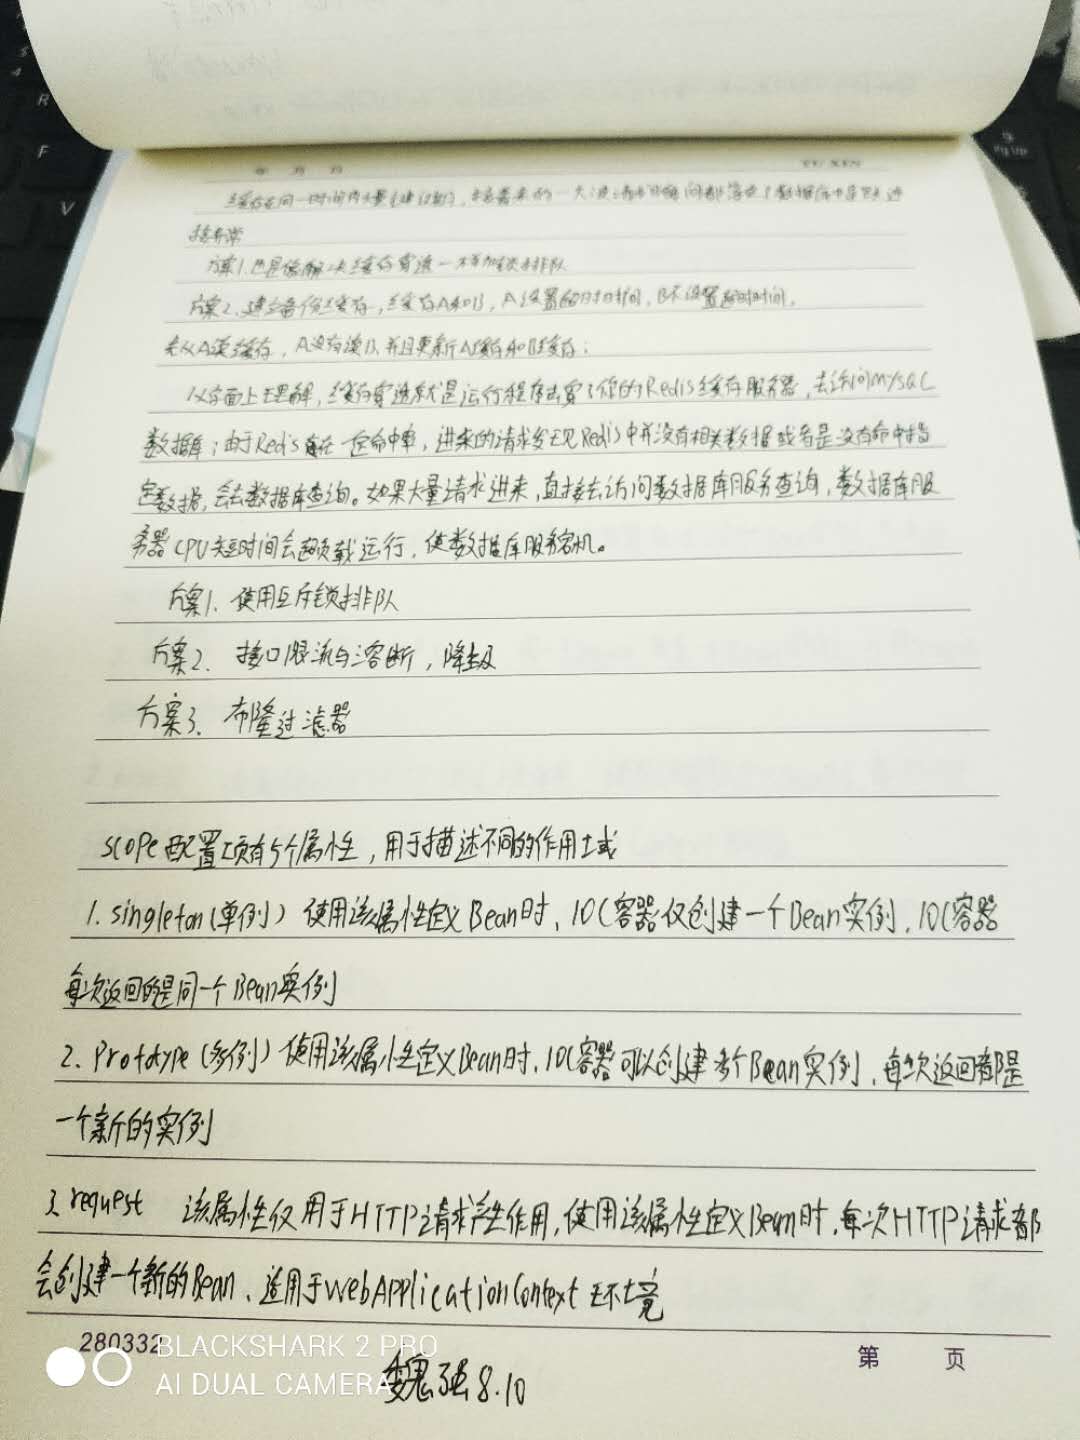 年 月 日
YU XIN
缓存在同一时间内大量键过期,接着来的一大波请求瞬间都落在了数据库中导致连
接异常
方案1.也是像解决缓存穿透一样加锁排队
方案2.建立备份缓存,缓存A和B,A设置超时时间,B不设置超时时间,
先从A读缓存,A没有读B,并且更新A缓存和B缓存;
从字面上理解,缓存穿透就是运行程序击穿了你的Redis缓存服务器,去访问MYSQL
数据库;由于Redis存在一定命中率,进来的请求发现Redis中并没有相关数据或者是没有命中指
定数据,会去数据库查询。如果大量请求进来,直接去访问数据库服务查询,数据库服
务器CPU短时间会超负载运行,使数据库服务宕机。
方案1、使用互斥锁排队
方案2、接口限流与溶断,降级
方案3、布隆过滤器
scope配置项有5个属性,用于描述不同的作用域
1.singleton(单例)使用该属性定义Bean时,IOC容器仅创建一个Bean实例,IOC容器
每次返回的是同一个Bean实例
2.Prototype(多例)使用该属性定义Bean时,IOC容器可以创建多个Bean实例,每次返回都是
一个新的实例
3.request 该属性仅用于HTTP请求产生作用,使用该属性定义Bean时,每次HTTP请求都
会创建一个新的Bean、适用于WebApplicationContext环境
280332
第 页
魏强8.10
BLACKSHARK 2 PRO
AI DUAL CAMERA